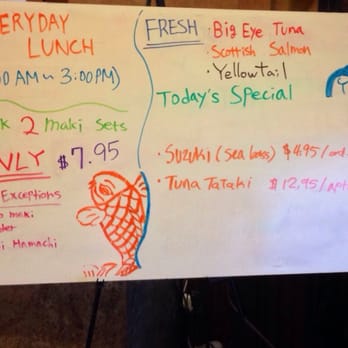 ERYDAY
LUNCH
00 AM ~ 3:00PM)
k 2 maki sets
NLY $7.95
Exceptions
o maki
der
i Hamachi
FRESH · Big Eye Tuna
· Scottish Salmon
· Yellowtail
Today's Special
· Suzuki (Sea bass) $4.95/ord
· Tuna Tataki $12.95/apt